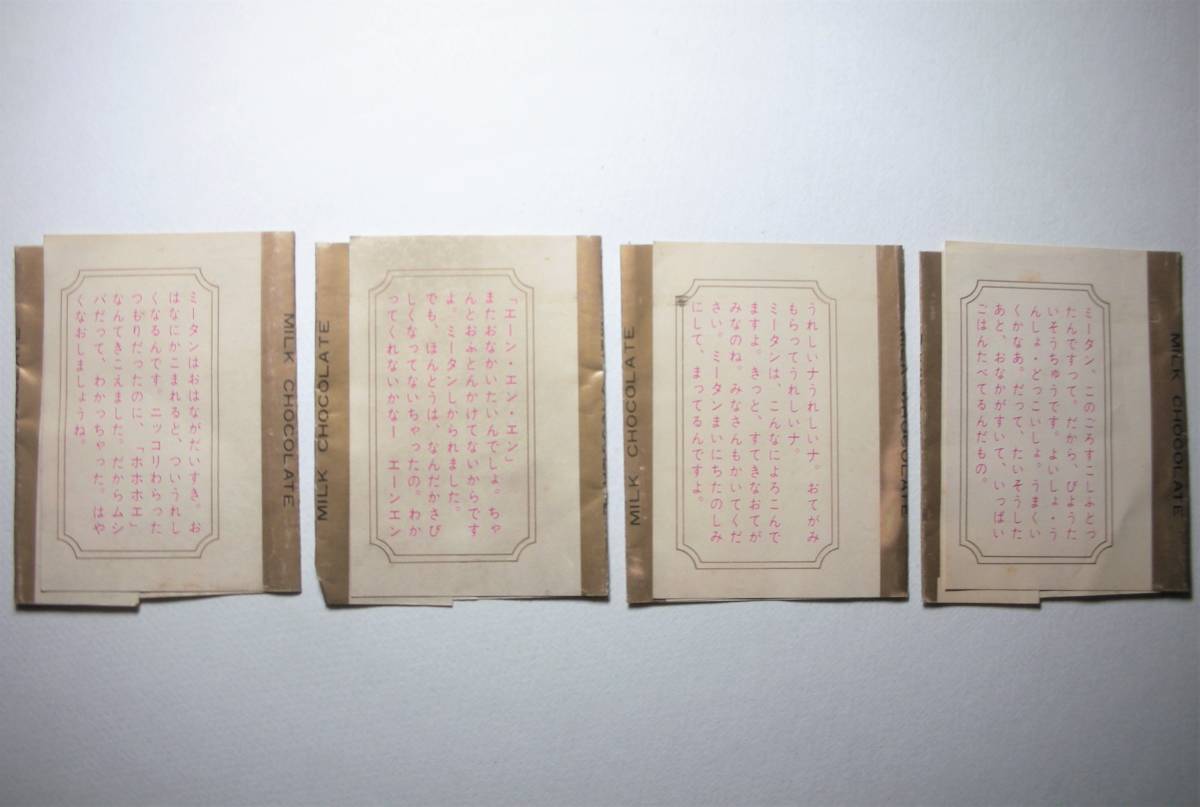 ミータンはおはながだいすき。お
はなにかこまれると、ついうれし
くなるんです。ニッコリわらった
つもりだったのに、「ホホホエ」
なんてきこえました。だからムシ
バだって、わかっちゃった。はや
くなおしましょうね。
MILK CHOCOLATE
MILK CHOCOLATE
「エーン・エン・エン」
またおなかいたいんでしょ。ちゃ
んとおふとんかけてないからです
よ。ミータンしかられました。
でも、ほんとうは、なんだかさび
しくなってないちゃったの。わか
ってくれないかなー エーンエン
MILK CHOCOLATE
うれしいナうれしいナ。おてがみ
もらってうれしいナ。
ミータンは、こんなによろこんで
ますよ。きっと、すてきなおてが
みなのね。みなさんもかいてくだ
さい。ミータンまいにちたのしみ
にして、まってるんですよ。
ミータン、このごろすこしふとっ
たんですって。だから、びようた
いそうちゅうです。よいしょ・う
んしょ・どっこいしょ。うまくい
くかなあ。だって、たいそうした
あと、おなかがすいて、いっぱい
ごはんたべてるんだもの。
MILK CHOCOLATE